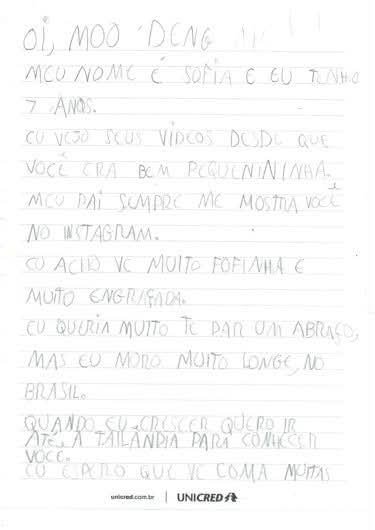 OI, MOO DENG !!!
MEU NOME É SOFIA E EU TENHO
7 ANOS.
EU VEJO SEUS VÍDEOS DESDE QUE
VOCÊ ERA BEM PEQUENININHA.
MEU PAI SEMPRE ME MOSTRA VOCÊ
NO INSTAGRAM.
EU ACHO VC MUITO FOFINHA E
MUITO ENGRAÇADA.
EU QUERIA MUITO TE DAR UM ABRAÇO,
MAS EU MORO MUITO LONGE, NO
BRASIL.
QUANDO EU CRESCER QUERO IR
ATÉ A TAILÂNDIA PARA CONHECER
VOCÊ.
EU ESPERO QUE VC COMA MUITAS
unicred.com.br | UNICRED